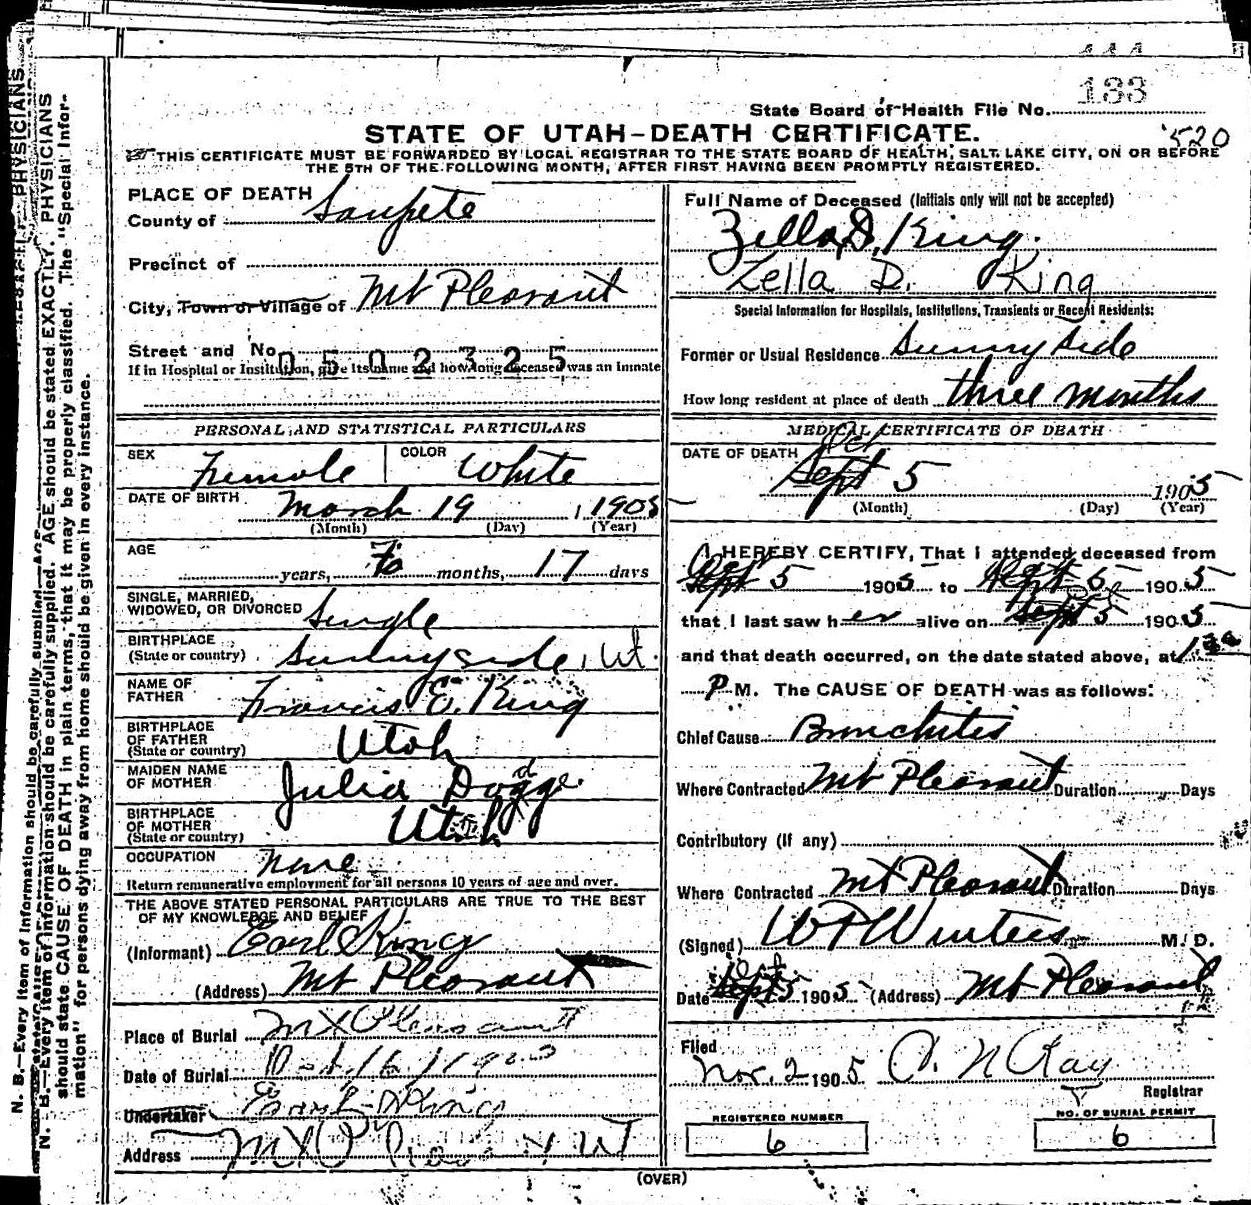 133
State Board of Health File No.
STATE OF UTAH-DEATH CERTIFICATE.
'520
THIS CERTIFICATE MUST BE FORWARDED BY LOCAL REGISTRAR TO THE STATE BOARD OF HEALTH, SALT LAKE CITY, ON OR BEFORE
THE 5TH OF THE FOLLOWING MONTH, AFTER FIRST HAVING BEEN PROMPTLY REGISTERED.
PLACE OF DEATH
County of Sanpete
Precinct of
City, Town or Village of Mt Pleasant
Street and No.
0502325
If in Hospital or Institution, give its name and how long deceased was an inmate
PERSONAL AND STATISTICAL PARTICULARS
SEX Female COLOR White
DATE OF BIRTH March 19, 1905
(Month) (Day) (Year)
AGE years, months, 17 days
SINGLE, MARRIED,
WIDOWED, OR DIVORCED Single
BIRTHPLACE
(State or country) Sunnyside, Ut.
NAME OF
FATHER Francis E. King
BIRTHPLACE
OF FATHER
(State or country) Utah
MAIDEN NAME
OF MOTHER Julia
BIRTHPLACE
OF MOTHER
(State or country) Utah
OCCUPATION none
Return remunerative employment for all persons 10 years of age and over.
THE ABOVE STATED PERSONAL PARTICULARS ARE TRUE TO THE BEST
OF MY KNOWLEDGE AND BELIEF
(Informant) Earl King
(Address) Mt Pleasant
Place of Burial Mt Pleasant
Date of Burial
Undertaker King
Address Mt Ut
Full Name of Deceased (Initials only will not be accepted)
Zella D. King.
Zella D. King
Special Information for Hospitals, Institutions, Transients or Recent Residents:
Former or Usual Residence Sunny Side
How long resident at place of death three months
MEDICAL CERTIFICATE OF DEATH
DATE OF DEATH Oct
Sept 5 1905
(Month) (Day) (Year)
I HEREBY CERTIFY, That I attended deceased from
Sept 5 1905 to 1905
that I last saw her alive on Sept 5 1905
and that death occurred, on the date stated above, at 1 30
P M. The CAUSE OF DEATH was as follows:
Chief Cause Bronchitis
Where Contracted Mt Pleasant Duration Days
Contributory (If any)
Where Contracted Mt Pleasant Duration Days
(Signed) W P Winters M. D.
Date Sept 5 1905 (Address) Mt Pleasant
Filed
Nov. 2 1905 Ray
Registrar
REGISTERED NUMBER
6
NO. OF BURIAL PERMIT
6
(OVER)
N. B.—Every item of information should be carefully supplied. AGE should be stated EXACTLY. PHYSICIANS
should state CAUSE OF DEATH in plain terms, that it may be properly classified. The "Special Infor-
mation" for persons dying away from home should be given in every instance.